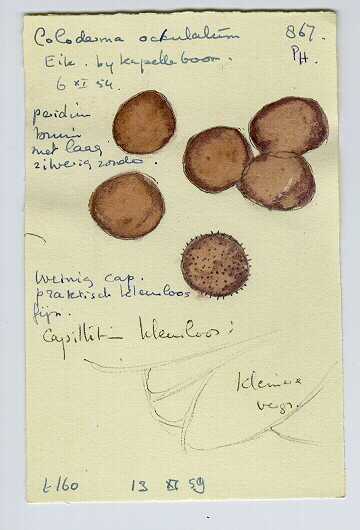 Coloderma oculatum 867.
Eik. by kapelleboom. PH.
6 XI 54.
peridin
bruin
met laag
zilverig zonder.
Weinig cap.
praktisch kleurloos
fijn.
Capillitin kleurloos:
kleinere
vergr.
t160 13 XI 59